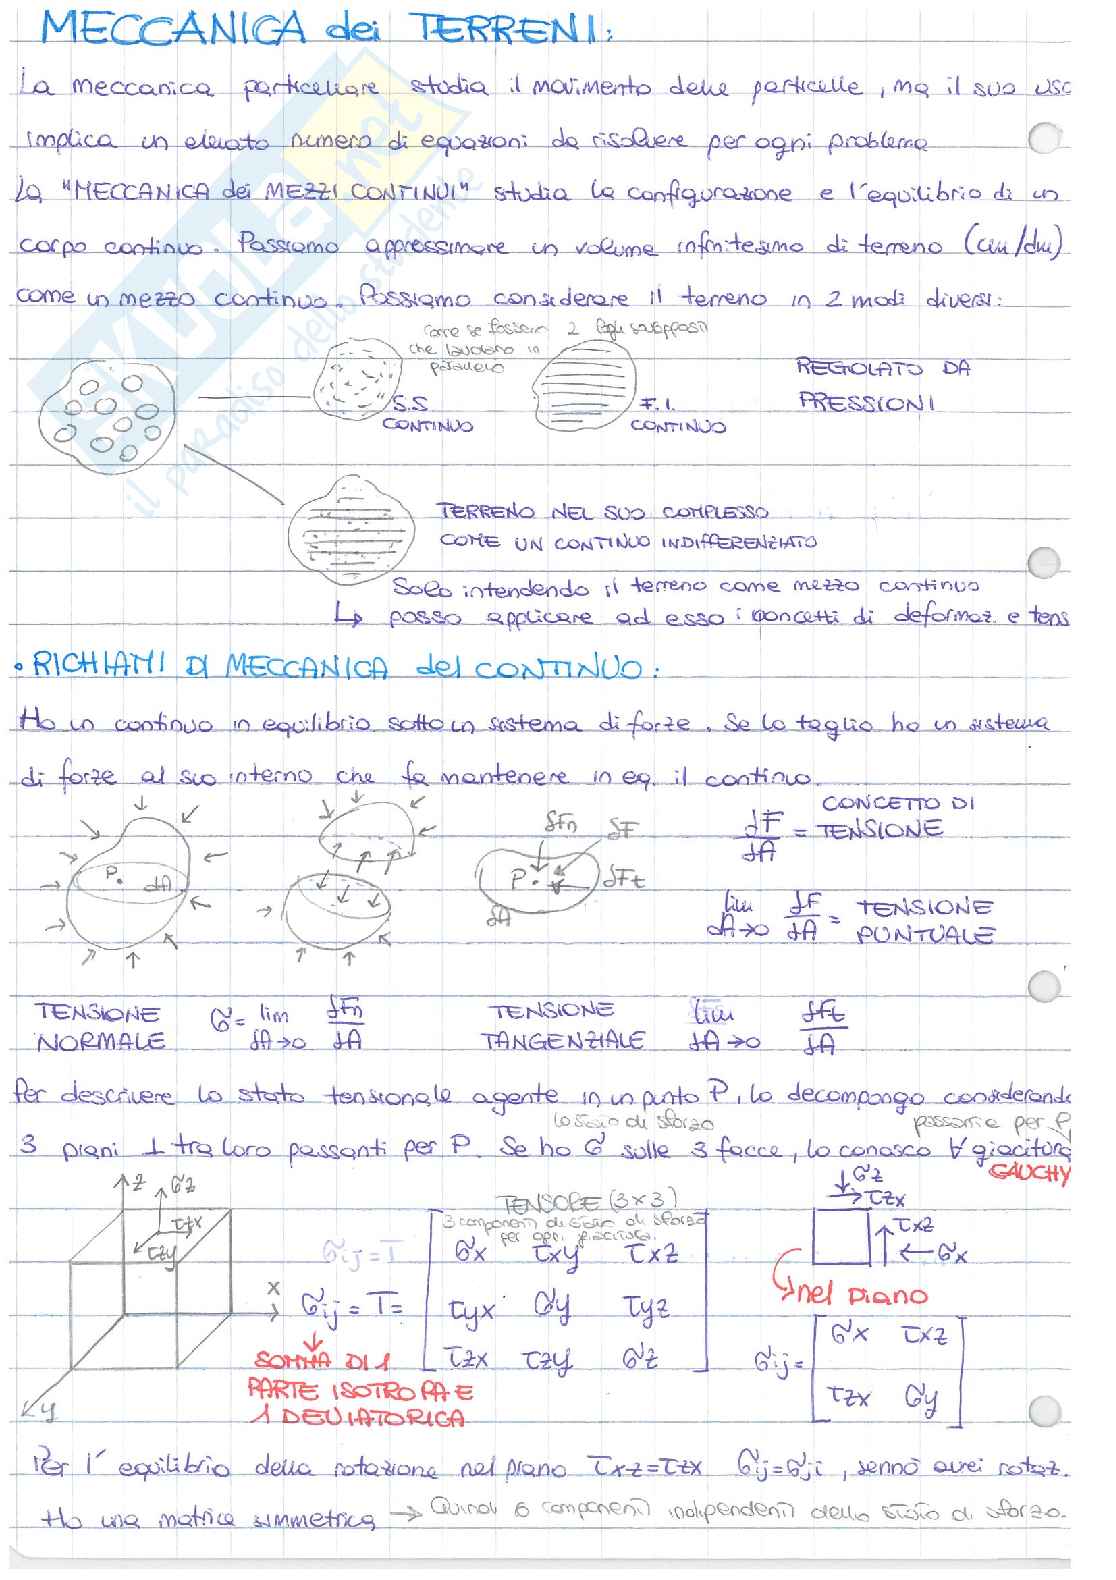 MECCANICA dei TERRENI:
La meccanica particellare studia il movimento delle particelle, ma il suo uso
implica un elevato numero di equazioni da risolvere per ogni problema
La "MECCANICA dei MEZZI CONTINUI" studia la configurazione e l'equilibrio di un
corpo continuo. Possiamo approssimare un volume infinitesimo di terreno (cm/dm)
come un mezzo continuo. Possiamo considerare il terreno in 2 modi diversi:
come se fossero 2 fogli sovrapposti
che lavorano in
parallelo
S.S.
CONTINUO
F.I.
CONTINUO
REGOLATO DA
PRESSIONI
TERRENO NEL SUO COMPLESSO
COME UN CONTINUO INDIFFERENZIATO
Solo intendendo il terreno come mezzo continuo
↳ posso applicare ad esso i concetti di deformaz. e tens
• RICHIAMI DI MECCANICA del CONTINUO:
Ho un continuo in equilibrio sotto un sistema di forze. Se lo taglio ho un sistema
di forze al suo interno che fa mantenere in eq. il continuo.
P. dA
δFn δF
P. δFt
δA
δF/δA = CONCETTO DI TENSIONE
lim δA→0 δF/δA = TENSIONE PUNTUALE
TENSIONE NORMALE σ = lim δA→0 δFn/δA
TENSIONE TANGENZIALE lim δA→0 δFt/δA
Per descrivere lo stato tensionale agente in un punto P, lo decompongo considerando
lo stato di sforzo passante per P
3 piani ⊥ tra loro passanti per P. Se ho σ sulle 3 facce, lo conosco ∀ giacitura
CAUCHY
z σz
τzx
τzy
x
y
TENSORE (3×3)
3 componenti di stato di sforzo
per ogni giacitura.
σij = T
σij = T =
σx τxy τxz
τyx σy τyz
τzx τzy σz
SOMMA DI 1
PARTE ISOTROPA E
1 DEVIATORICA
σz
τzx
τxz
σx
nel piano
σij =
σx τxz
τzx σy
Per l'equilibrio della rotazione nel piano τxz=τzx σij=σji, sennò avrei rotaz.
Ho una matrice simmetrica → Quindi 6 componenti indipendenti dello stato di sforzo.
SKUOLA.net
il paradiso dello studente